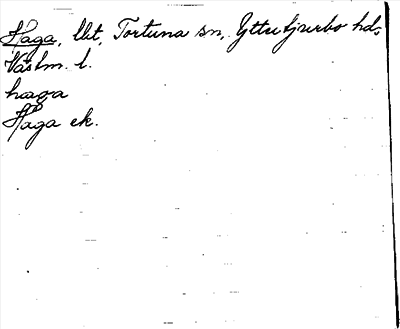 Haga, lht, Tortuna sn, Yttertjurbo hd,
Västm. l.
haga
Haga ek.